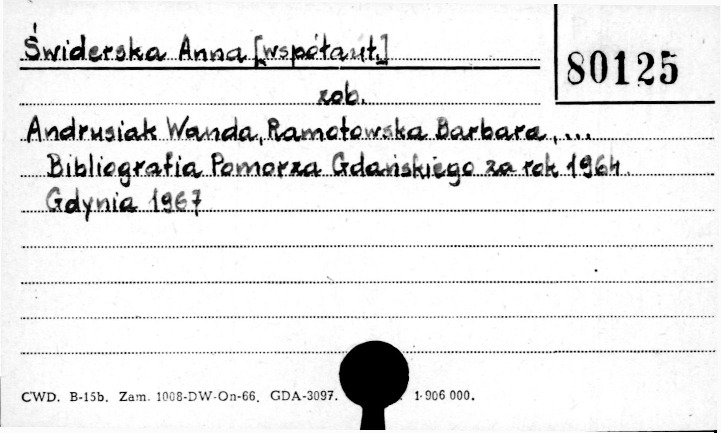 Świderska Anna [współaut.]
80125
zob.
Andrusiak Wanda, Ramotowska Barbara, ...
Bibliografia Pomorza Gdańskiego za rok 1964.
Gdynia 1967
CWD. B-15b. Zam. 1008-DW-On-66. GDA-3097. 1·906 000.